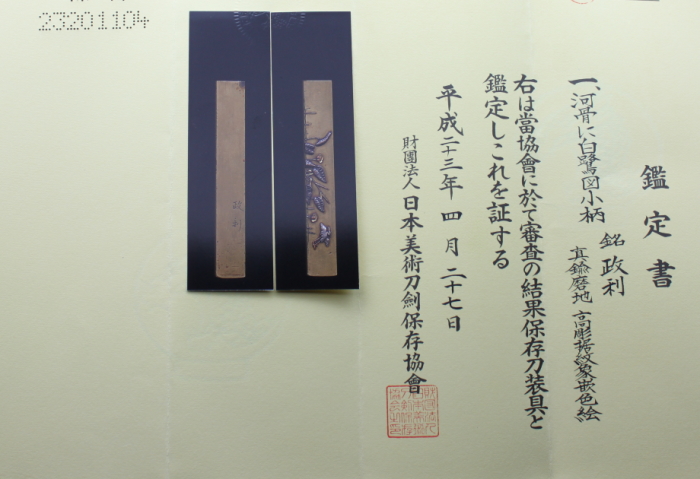 23201104
鑑定書
一、河骨に白鷺図小柄
銘 政利
真鍮磨地 高彫据紋象嵌色絵
右は當協會に於て審査の結果保存刀装具と
鑑定しこれを証する
平成二十三年 四月 二十七日
財團法人 日本美術刀劍保存協會
政利